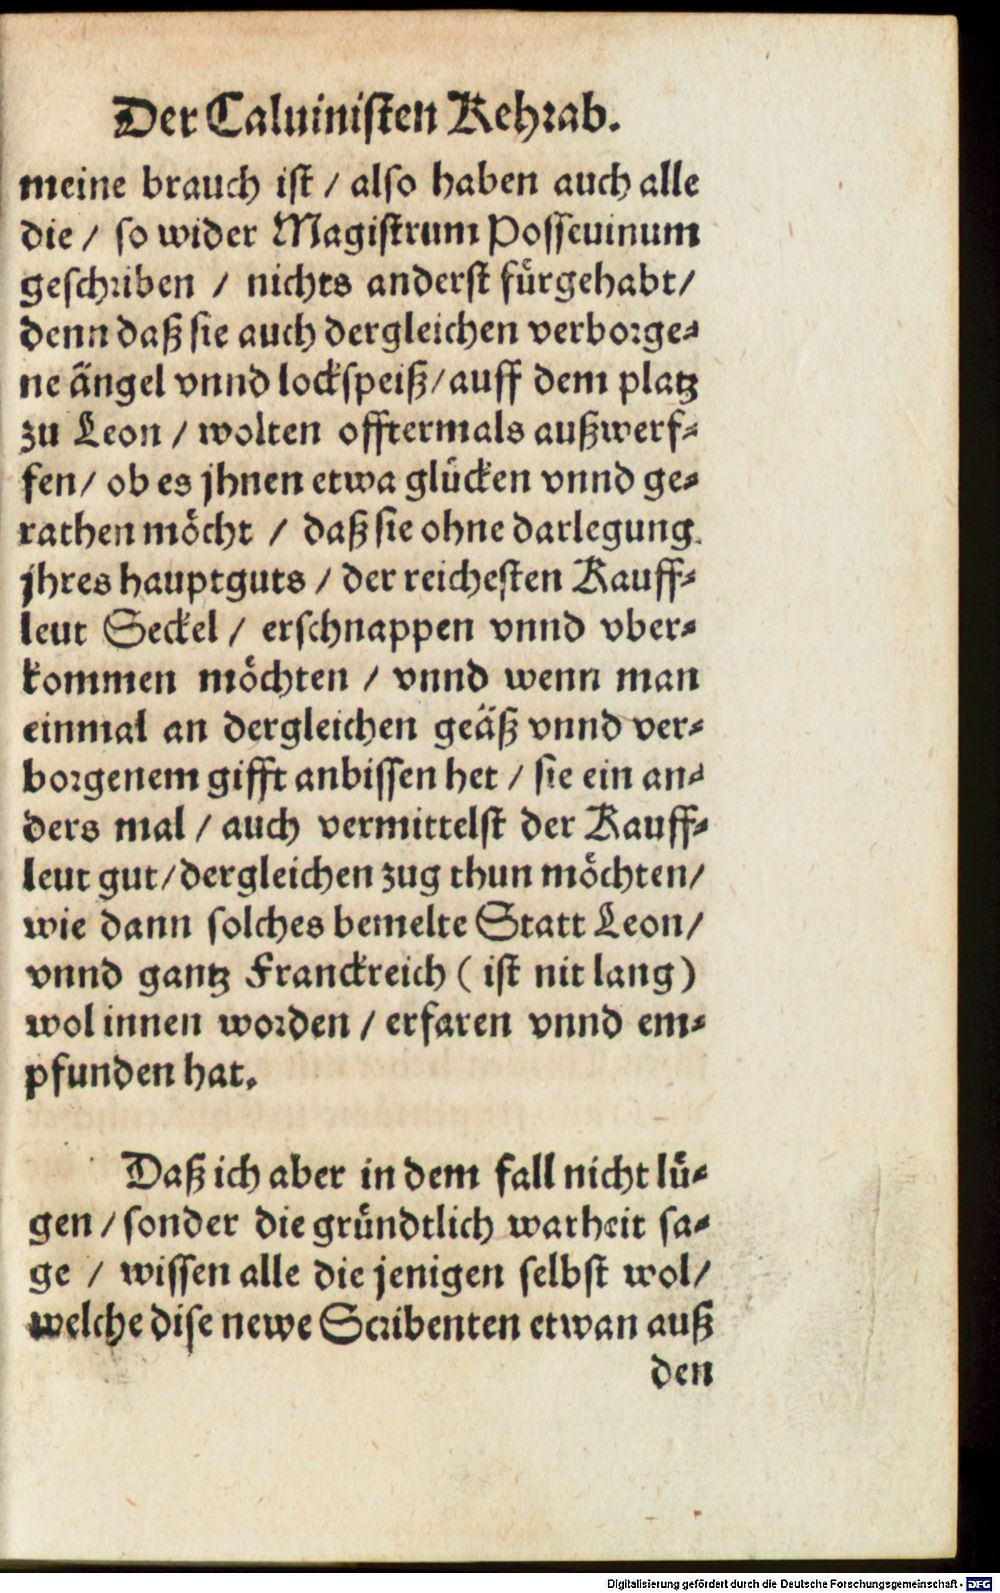 Der Caluinisten Kehrab.
meine brauch ist / also haben auch alle
die / so wider Magistrum Posseuinum
geschriben / nichts anderst fürgehabt/
denn daß sie auch dergleichen verborge⸗
ne ängel vnnd lockspeiß/auff dem platz
zu Leon / wolten offtermals außwerf⸗
fen/ ob es jhnen etwa glücken vnnd ge⸗
rathen möcht / daß sie ohne darlegung
jhres hauptguts / der reichesten Kauff⸗
leut Seckel / erschnappen vnnd vber⸗
kommen möchten / vnnd wenn man
einmal an dergleichen geäß vnnd ver⸗
borgenem gifft anbissen het / sie ein an⸗
ders mal / auch vermittelst der Kauff⸗
leut gut/dergleichen zug thun möchten/
wie dann solches bemelte Statt Leon/
vnnd gantz Franckreich ( ist nit lang)
wol innen worden / erfaren vnnd em⸗
pfunden hat.
Daß ich aber in dem fall nicht lü⸗
gen / sonder die gründtlich warheit sa⸗
ge / wissen alle die jenigen selbst wol/
welche dise newe Scribenten etwan auß
den
Digitalisierung gefördert durch die Deutsche Forschungsgemeinschaft - DFG